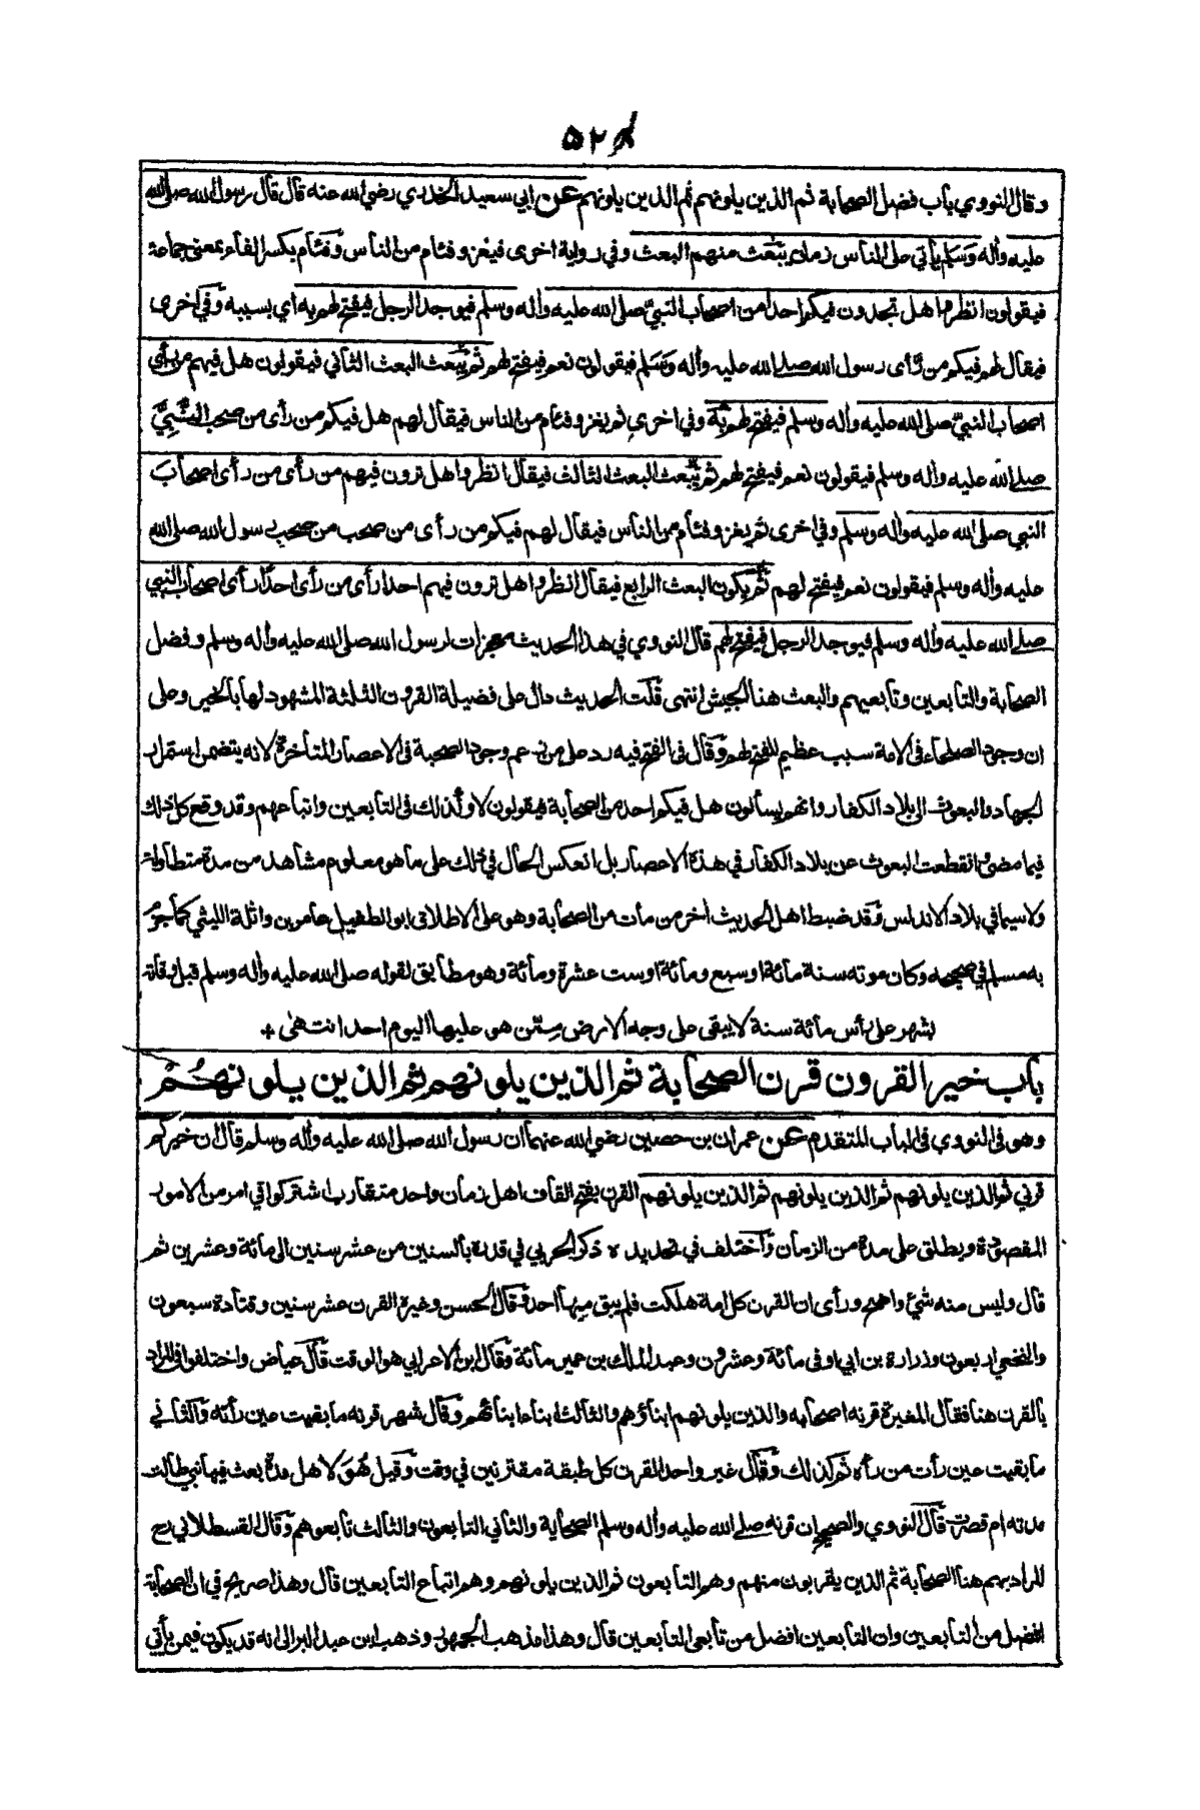 ٥٢٨
وقال النووي باب فضل الصحابة ثم الذين يلونهم ثم الذين يلونهم عن ابي سعيد الخدري رضي الله عنه قال قال رسول الله صلى الله
عليه وأله وسلم يأتي على الناس زمان يبعث منهم البعث وفي رواية اخرى فيغزو فئام من الناس وفئام بكسر الفاء بمعنى جماعة
فيقولون انظروا هل تجدون فيكم احدا من اصحاب النبي صلى الله عليه وأله وسلم فيوجد الرجل فيفتح لهم به اي بسببه وفي اخرى
فيقال لهم فيكم من رأى رسول الله صلى الله عليه وأله وسلم فيقولون نعم فيفتح لهم ثم يبعث البعث الثاني فيقولون هل فيهم من رأى
اصحاب النبي صلى الله عليه وأله وسلم فيفتح لهم به وفي اخرى ثم يغزو فئام من الناس فيقال لهم هل فيكم من رأى من صحب النبي
صلى الله عليه وأله وسلم فيقولون نعم فيفتح لهم ثم يبعث البعث الثالث فيقال انظروا هل ترون فيهم من رأى من رأى اصحاب
النبي صلى الله عليه وأله وسلم وفي اخرى ثم يغزو فئام من الناس فيقال لهم فيكم من رأى من صحب من صحب رسول الله صلى الله
عليه وأله وسلم فيقولون نعم فيفتح لهم ثم يكون البعث الرابع فيقال انظروا هل ترون فيهم احدا رأى من رأى احدا رأى اصحاب النبي
صلى الله عليه وأله وسلم فيوجد الرجل فيفتح لهم قال النووي في هذا الحديث معجزات لرسول الله صلى الله عليه وأله وسلم وفضل
الصحابة والتابعين وتابعيهم والبعث هنا الجيش انتهى قلت الحديث دال على فضيلة القرون الثلثة المشهود لها بالخير وعلى
ان وجود الصلحاء في الامة سبب عظيم للفتح لهم وقال في الفتح فيه رد على من زعم وجود الصحبة في الاعصار المتأخرة لانه يتضمن استمرار
الجهاد والبعوث الى بلاد الكفار وانهم يسألون هل فيكم احد من الصحابة فيقولون لا وكذلك في التابعين واتباعهم وقد وقع كل ذلك
فيما مضى وانقطعت البعوث عن بلاد الكفار في هذه الاعصار بل انعكس الحال في ذلك على ما هو معلوم مشاهد من مدة متطاولة
ولا سيما في بلاد الاندلس وقد ضبط اهل الحديث اخر من مات من الصحابة وهو على الاطلاق ابو الطفيل عامر بن واثلة الليثي كما جزم
به مسلم في صحيحه وكان موته سنة مائة او سبع ومائة او ست عشرة ومائة وهو مطابق لقوله صلى الله عليه وأله وسلم قبل وفاته
بشهر على رأس مائة سنة لا يبقى على وجه الارض ممن هو عليها اليوم احد انتهى +
باب خير القرون قرن الصحابة ثم الذين يلونهم ثم الذين يلونهم
وهو في النووي في الباب المتقدم عن عمران بن حصين رضي الله عنهما ان رسول الله صلى الله عليه وأله وسلم قال ان خيركم
قرني ثم الذين يلونهم ثم الذين يلونهم ثم الذين يلونهم القرن بفتح القاف اهل زمان واحد متقارب اشتركوا في امر من الامور
المقصودة ويطلق على مدة من الزمان واختلف في تحديده ذكر الحربي في قدره بالسنين من عشر سنين الى مائة وعشرين ثم
قال وليس منه شيء واضح ورأى ان القرن كل امة هلكت فلم يبق منها احد وقال الحسن وغيره القرن عشر سنين وقتادة سبعون
والنخعي اربعون وزرارة بن ابي اوفى مائة وعشرون وعبد الملك بن عمير مائة وقال ابن الاعرابي هو الوقت قال عياض واختلفوا في المراد
بالقرن هنا فقال المغيرة قرنه اصحابه والذين يلونهم ابناؤهم والثالث ابناء ابنائهم وقال شهر قرنه ما بقيت عين رأته والثاني
ما بقيت عين رأت من رأه ثم كذلك وقال غير واحد القرن كل طبقة مقترنين في وقت وقيل هو لاهل مدة بعث فيها نبي طالت
مدته ام قصرت قال النووي والصحيح ان قرنه صلى الله عليه وأله وسلم الصحابة والثاني التابعون والثالث تابعوهم وقال القسطلاني رح
المراد بهم هنا الصحابة ثم الذين يقربون منهم وهم التابعون ثم الذين يلونهم وهم اتباع التابعين قال وهذا صريح في ان الصحابة
افضل من التابعين وان التابعين افضل من تابعي التابعين قال وهذا مذهب الجمهور وذهب ابن عبد البر الى انه قد يكون فيمن يأتي